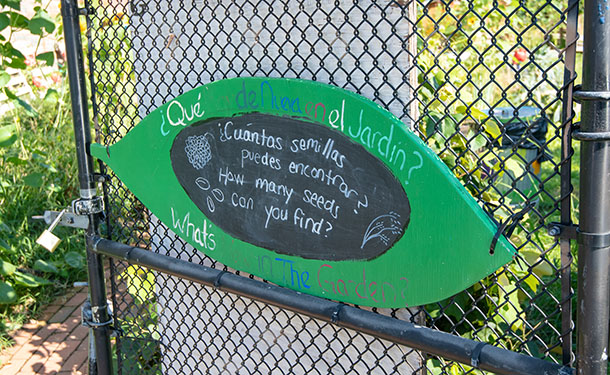 ¿Qué de en el Jardín?
¿Cuantas semillas
puedes encontrar?
How many seeds
can you find?
What's in The Garden?